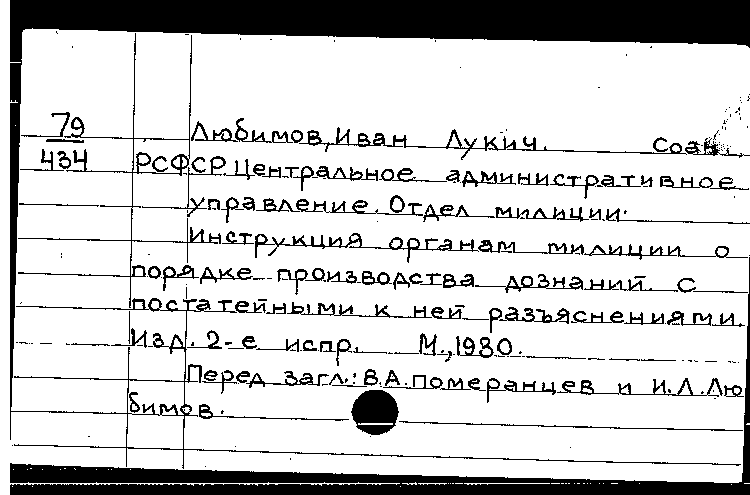 79
434
Любимов, Иван Лукич. Соав.
РСФСР. Центральное административное
управление. Отдел милиции.
Инструкция органам милиции о
порядке производства дознаний. С
постатейными к ней разъяснениями.
Изд. 2-е испр. М., 1930.
Перед загл.: В.А.Померанцев и И.Л.Лю
бимов.